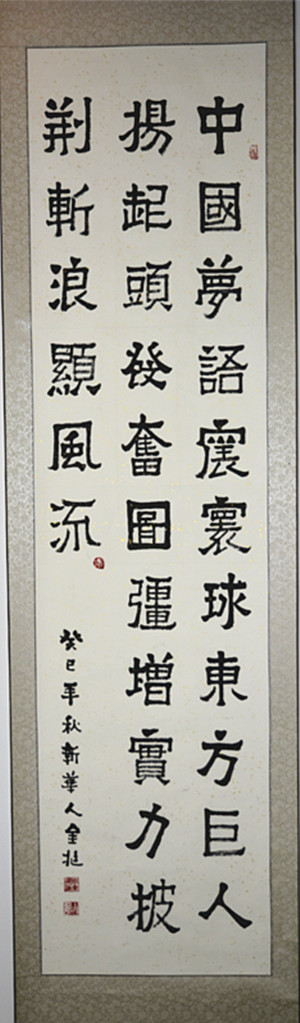 中國夢語震寰球東方巨人
揚起頭發奮圖彊增實力披
荆斬浪顯風流
癸巳年秋新華人金挺